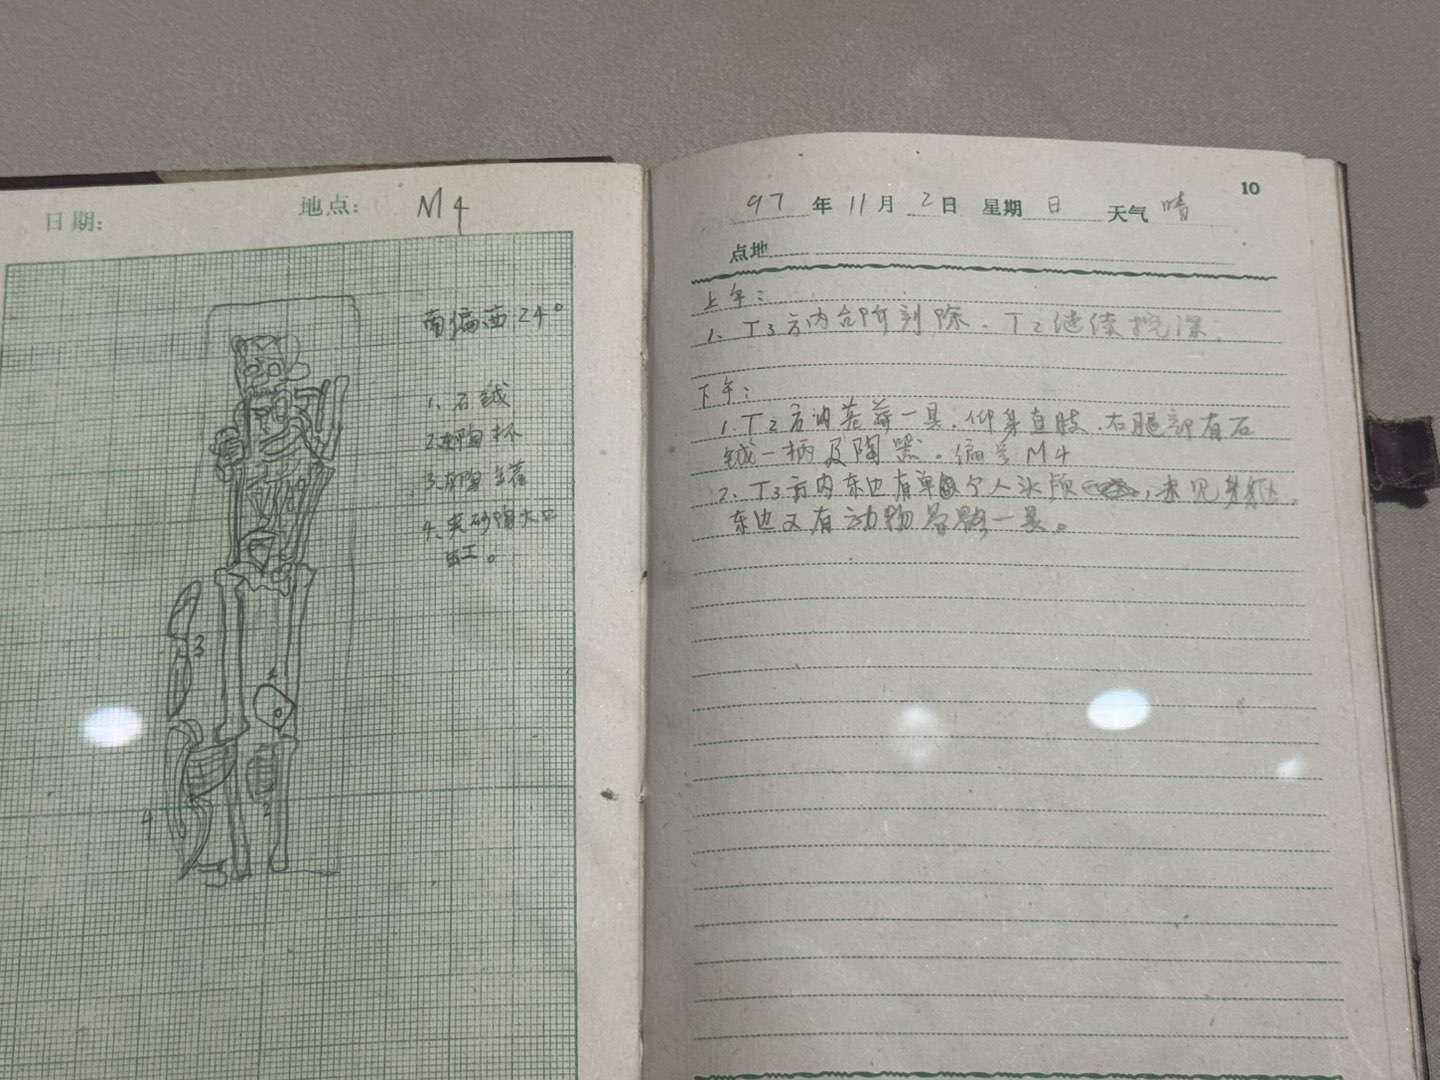 日期: 地点: M4
南偏西24°
1、石钺
2、陶杯
3、陶
4、夹砂陶大口
缸。
3
4
2
10
97年11月2日 星期日 天气 晴
点地
上午：
1、T3方内台阶剖除、T2继续挖深。
下午：
1、T2方内 一具、仰身直肢、右腿部有石
钺一柄及陶器。编号M4
2、T3方内东边有单个人头颅，未见身体。
东边又有动物骨骼一具。